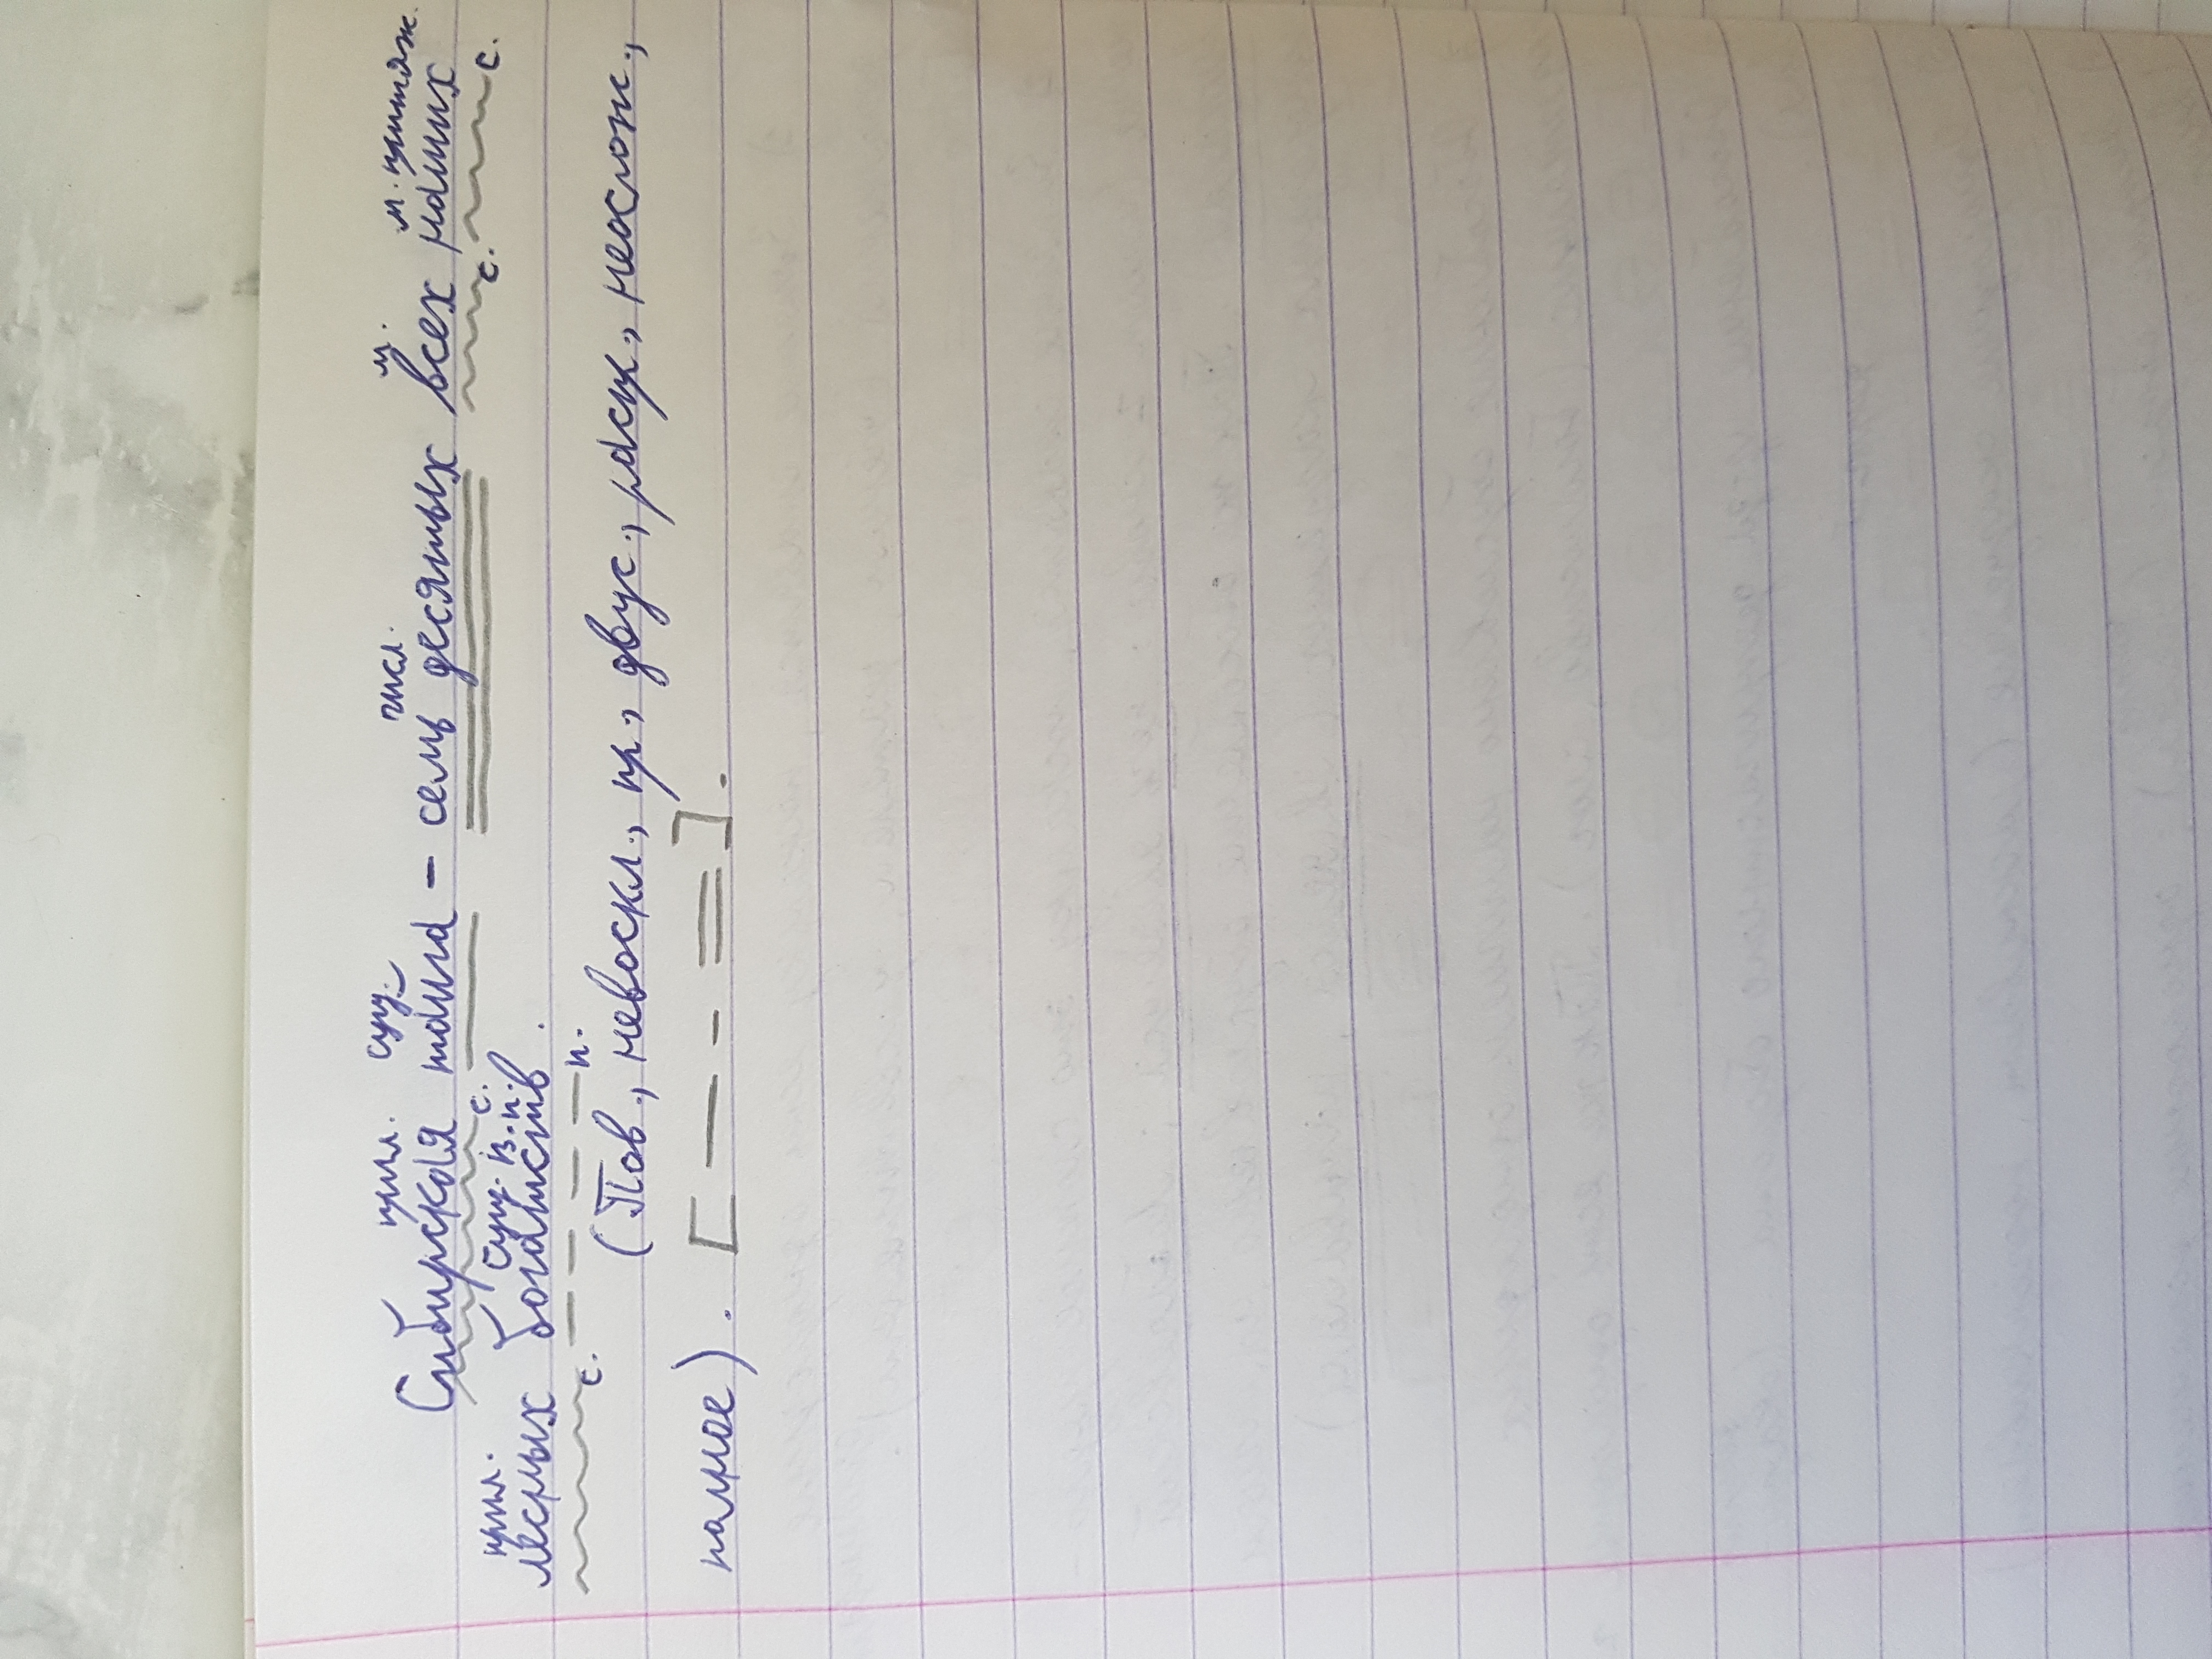 прил. сущ. числ. м. м. притяж.
Сибирская тайга – семь десятых всех наших
с. с. с.
прил. сущ. в.п.
лесных богатств.
с. п.
(Пов., невоскл., пр., двус., расп., неослож.,
полное). [— - =].